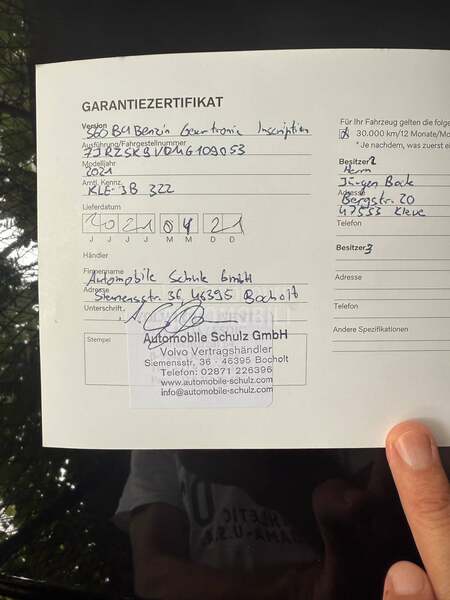 GARANTIEZERTIFIKAT
Version
S60 B4 Benzin Geartronic Inscription
Ausführung/Fahrgestellnummer
Modelljahr
2021
Amtl. Kennz.
KLE-JB 322
Lieferdatum
2021 04 21
J J J J M M D D
Händler
Firmenname
Automobile Schulz GmbH
Adresse
Siemensstr. 36, 46395 Bocholt
Unterschrift
Stempel
Automobile Schulz GmbH
Volvo Vertragshändler
Siemensstr. 36 - 46395 Bocholt
Telefon: 02871 226396
www.automobile-schulz.com
info@automobile-schulz.com
Für Ihr Fahrzeug gelten die folge
30.000 km/12 Monate/Mo
* Je nachdem, was zuerst e
Besitzer 2
Herrn
Jürgen Bock
Adresse
Bergstr. 20
47533 Kleve
Telefon
Besitzer 3
Adresse
Telefon
Andere Spezifikationen